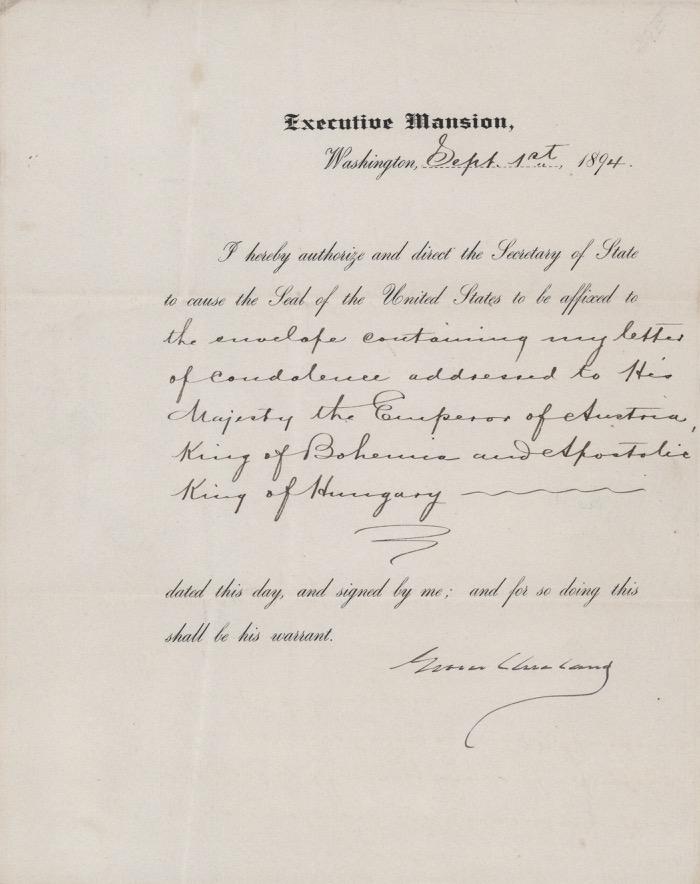 Executive Mansion,
Washington, Sept. 1st, 1894.
I hereby authorize and direct the Secretary of State
to cause the Seal of the United States to be affixed to
the envelope containing my letter
of condolence addressed to His
Majesty the Emperor of Austria,
King of Bohemia and Apostolic
King of Hungary
dated this day, and signed by me; and for so doing this
shall be his warrant.
Grover Cleveland